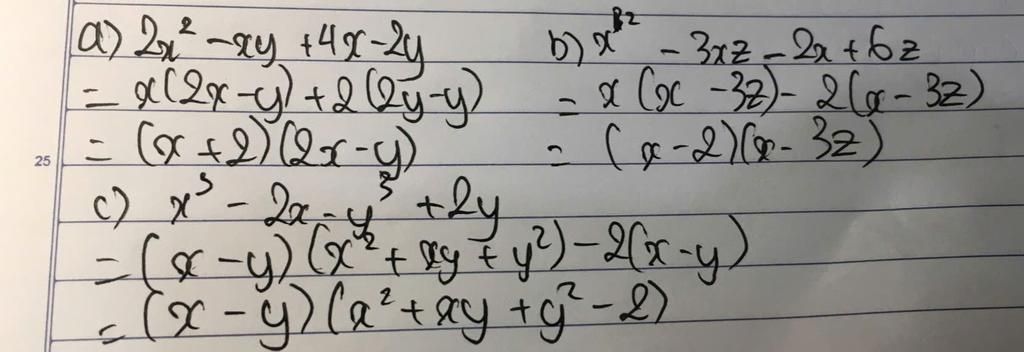 a) 2x² - xy + 4x - 2y
= x(2x - y) + 2(2y - y)
= (x + 2)(2x - y)
b) x² - 3xz - 2x + 6z
= x(x - 3z) - 2(x - 3z)
= (x - 2)(x - 3z)
25
c) x³ - 2x - y³ + 2y
= (x - y)(x² + xy + y²) - 2(x - y)
= (x - y)(x² + xy + y² - 2)